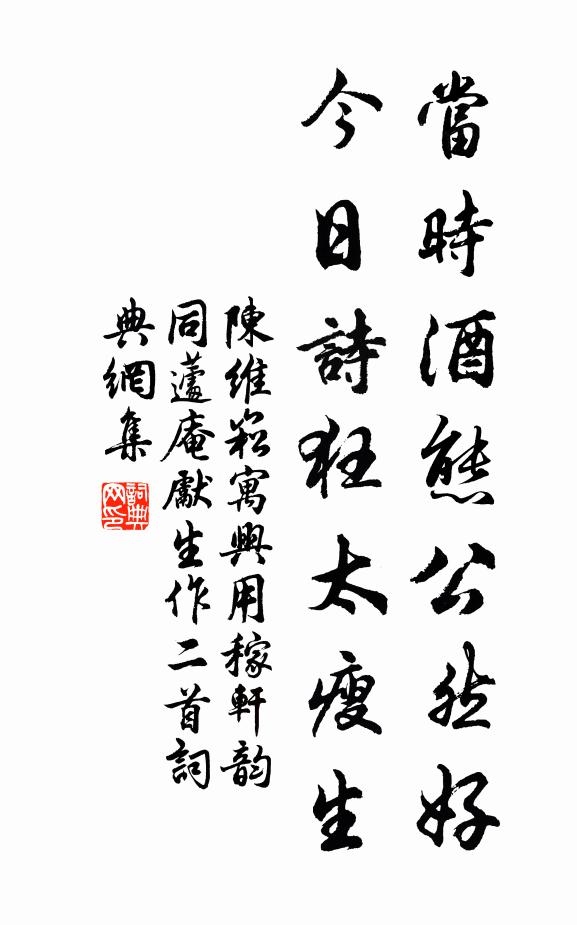 當時酒態公然好
今日詩狂太瘦生
陳維崧寓興用稼軒韵
同蘧庵獻生作二首詞
典網集
詞典网印